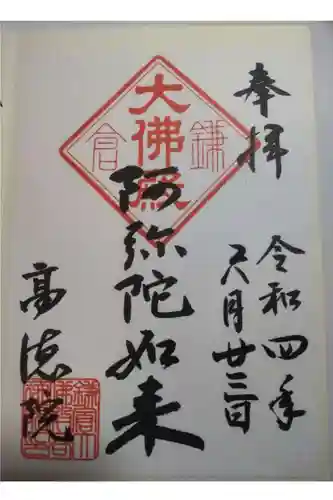 奉拝
令和四年
六月廿三日
鎌倉
大佛殿
阿弥陀如来
高徳院